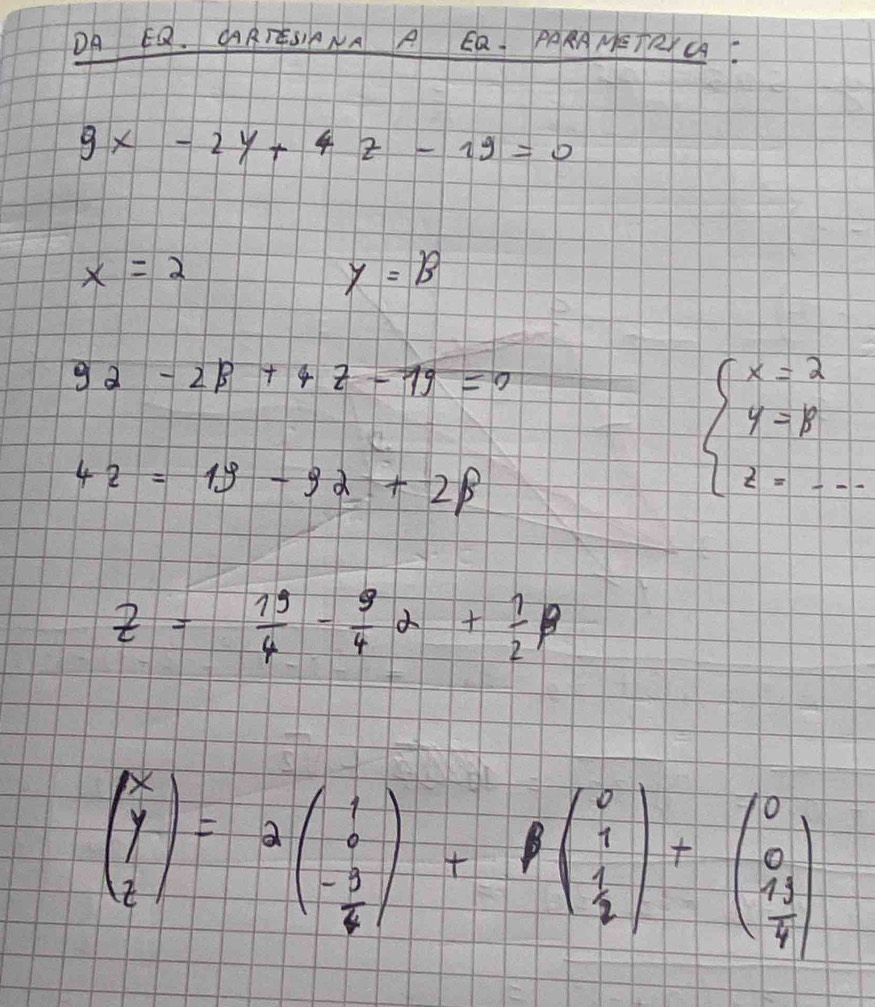 DA EQ. CARTESIANA A EQ. PARAMETRICA:
9x - 2y + 4z - 19 = 0
x = α y = β
9α - 2β + 4z - 19 = 0
4z = 19 - 9α + 2β
{ x = α
y = β
z = ---
z = 19/4 - 9/4 α + 1/2 β
(x y z) = α (1 0 -9/4) + β (0 1 1/2) + (0 0 19/4)